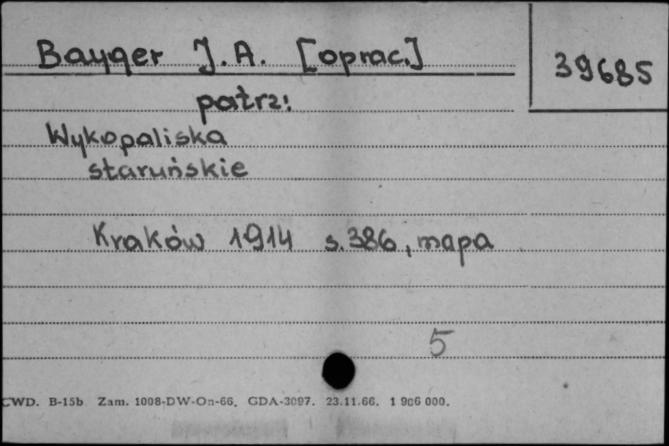 Bayger J. A. [oprac.]
39685
patrz:
Wykopaliska
staruńskie
Kraków 1914 s. 386, mapa
5
CWD. B-15b Zam. 1008-DW-On-66. GDA-3097. 23.11.66. 1 906 000.